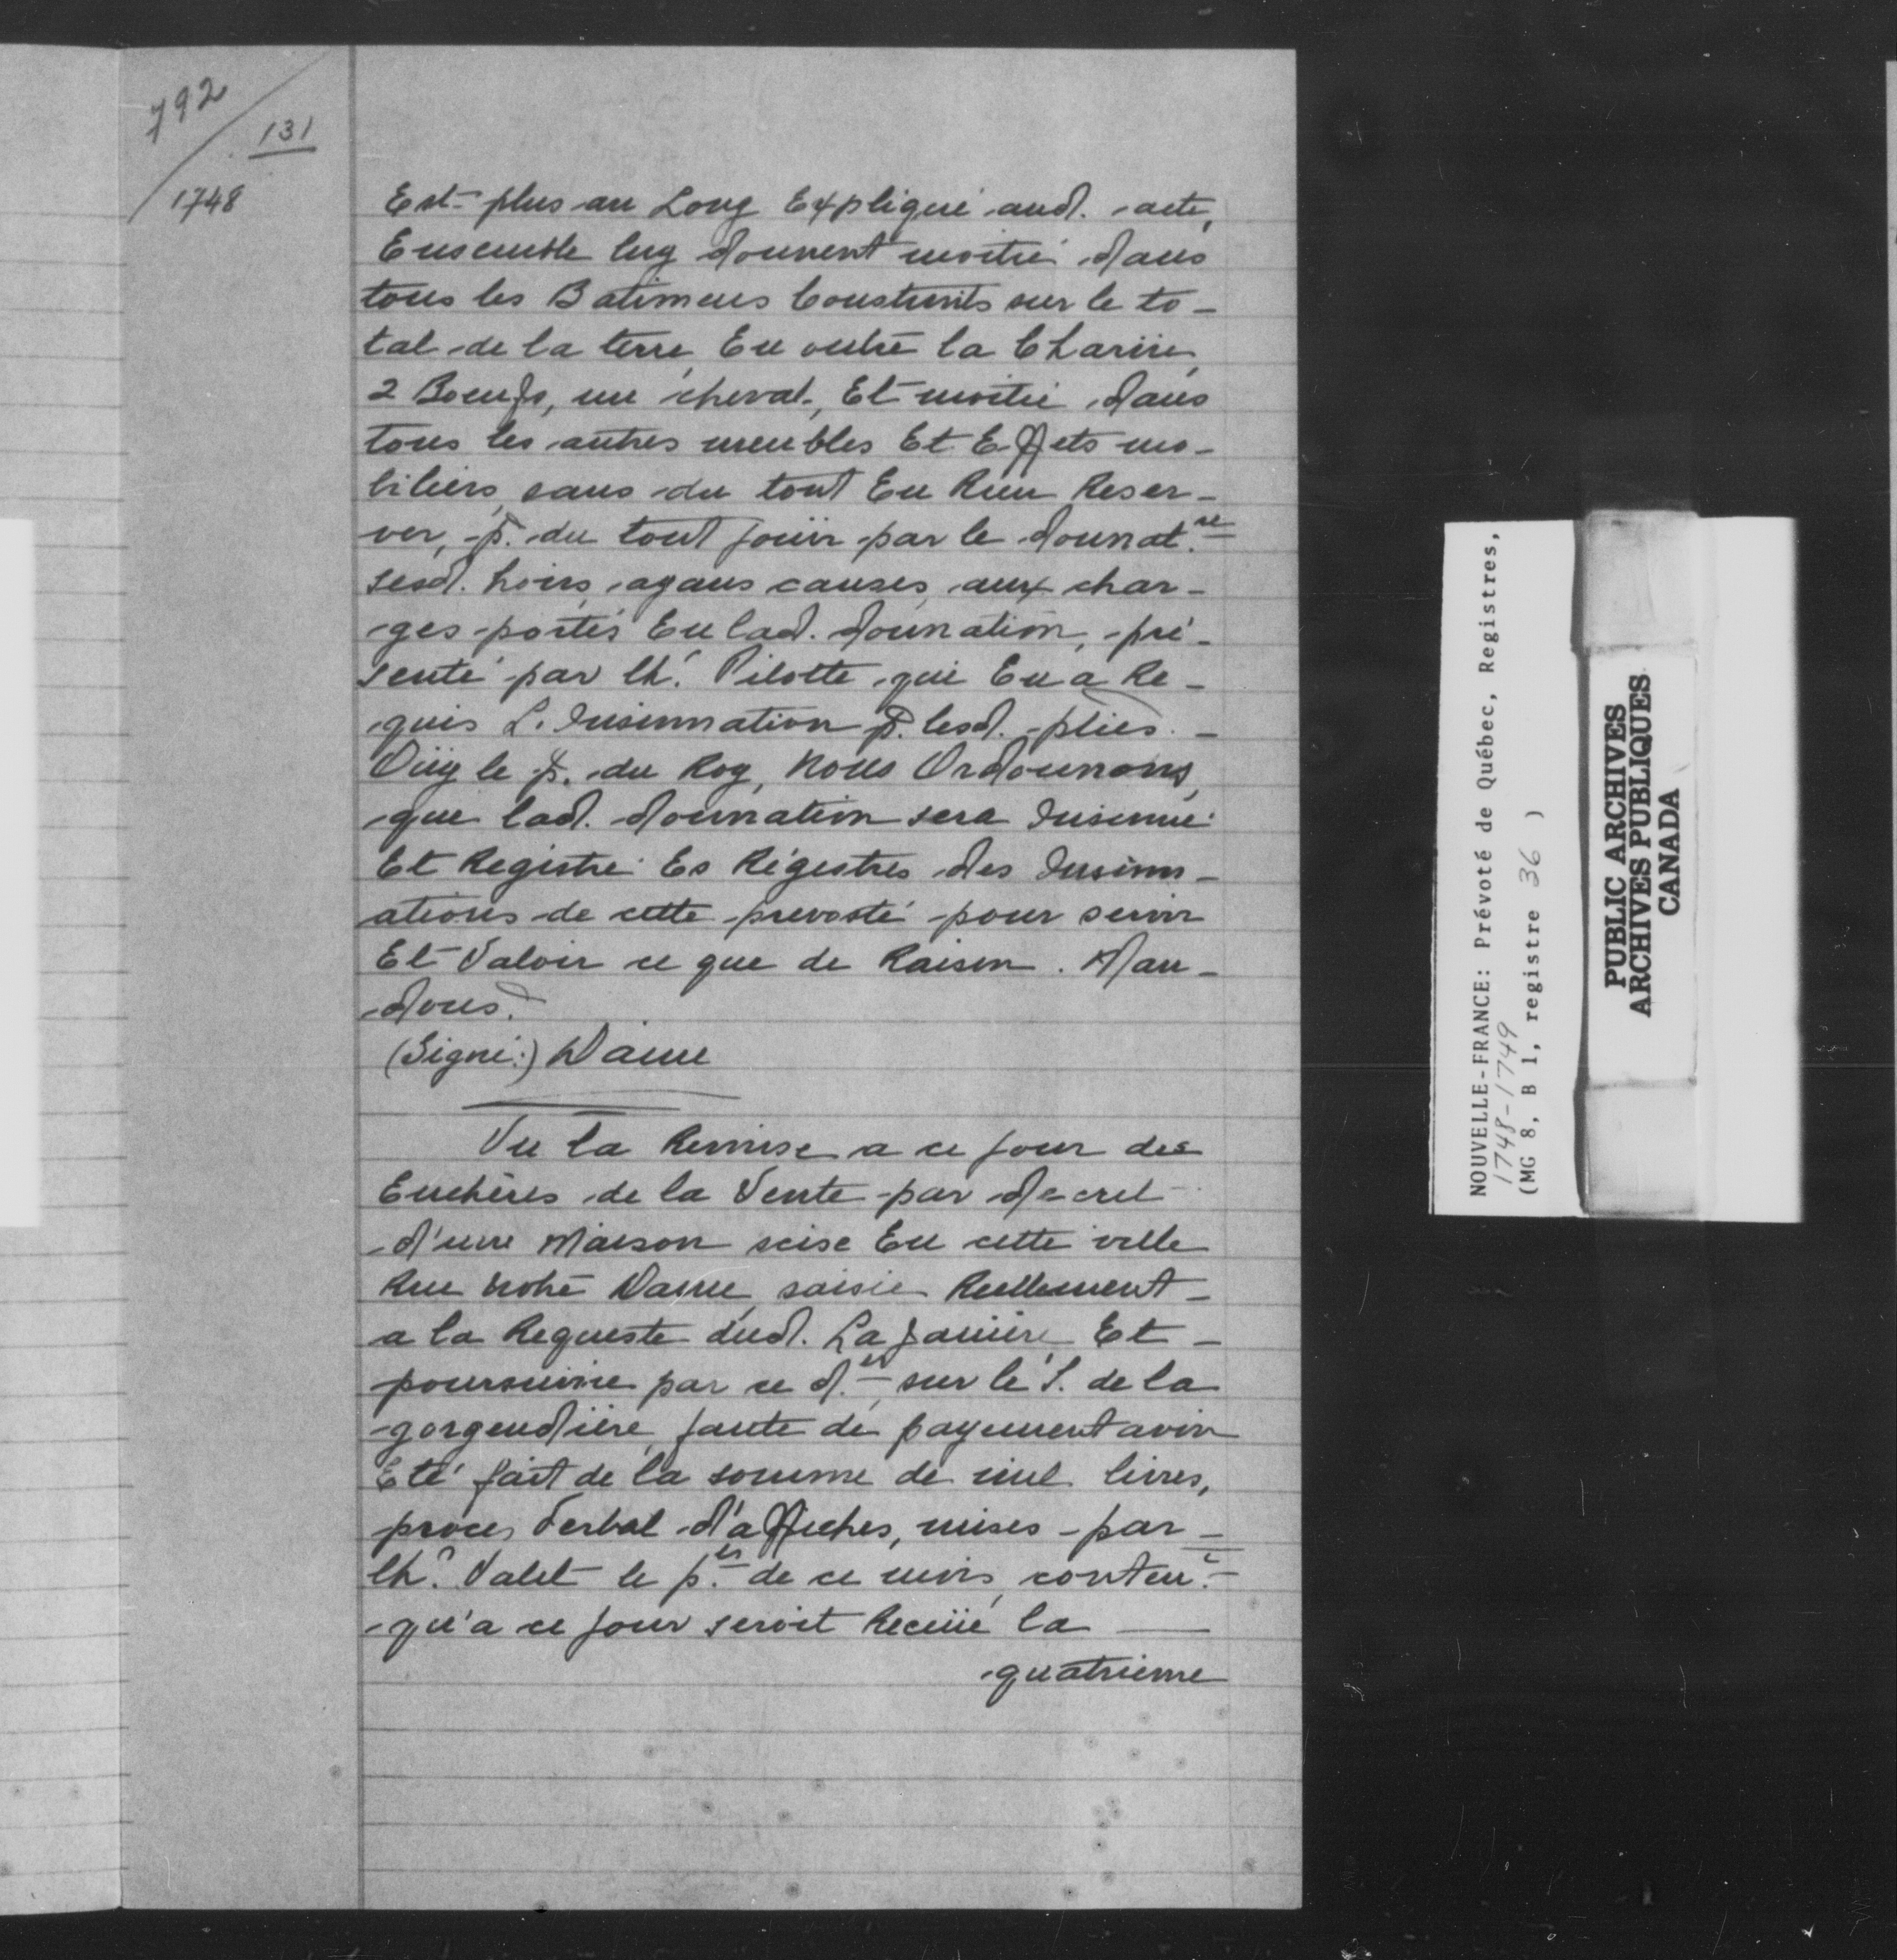 792
131
1748
Est plus au Long Expliqué aud. acte,
Ensemble luy donnent moitié dans
tous les Batimens Construits sur le to-
tal de la terre, En outre la Charüe,
2 Boeufs, un cheval, Et moitié dans
tous les autres meubles Et Effets mo-
biliers, sans du tout En Rien Reser-
ver, p. du tout joüir par le donnat.re
sesd. hoirs, ayans causes, aux char-
ges portés En lad. donnation, pré-
senté par Ch. Pilotte, qui En a Re-
quis L. Insinuation p. lesd. pties. -
Oüy le p. du Roy, Nous Ordonnons,
que lad. donnation sera Insinué
Et Registré Es Régistres des Insinu-
ations de cette prevosté pour servir
Et Valoir ce que de Raison. Man-
dons.
(Signé:) Daine
Vu la Remise a ce jour des
Enchères de la Vente par decret
d'une Maison scise En cette ville
Rue Notre Dame, saisie Réellement -
a la Requeste dud. Lajanière Et -
poursuivie par ce d.er sur le S. de la
gorgendière, faute de payement avoir
Eté fait de la somme de mil livres,
proces Verbal d'affiches, mises par -
Ch. Valet le p.er de ce mois, conten.t
qu'a ce jour seroit Receüe la
quatrieme
NOUVELLE-FRANCE: Prévoté de Québec, Registres,
1748-1749
(MG 8, B 1, registre 36 )
PUBLIC ARCHIVES
ARCHIVES PUBLIQUES
CANADA